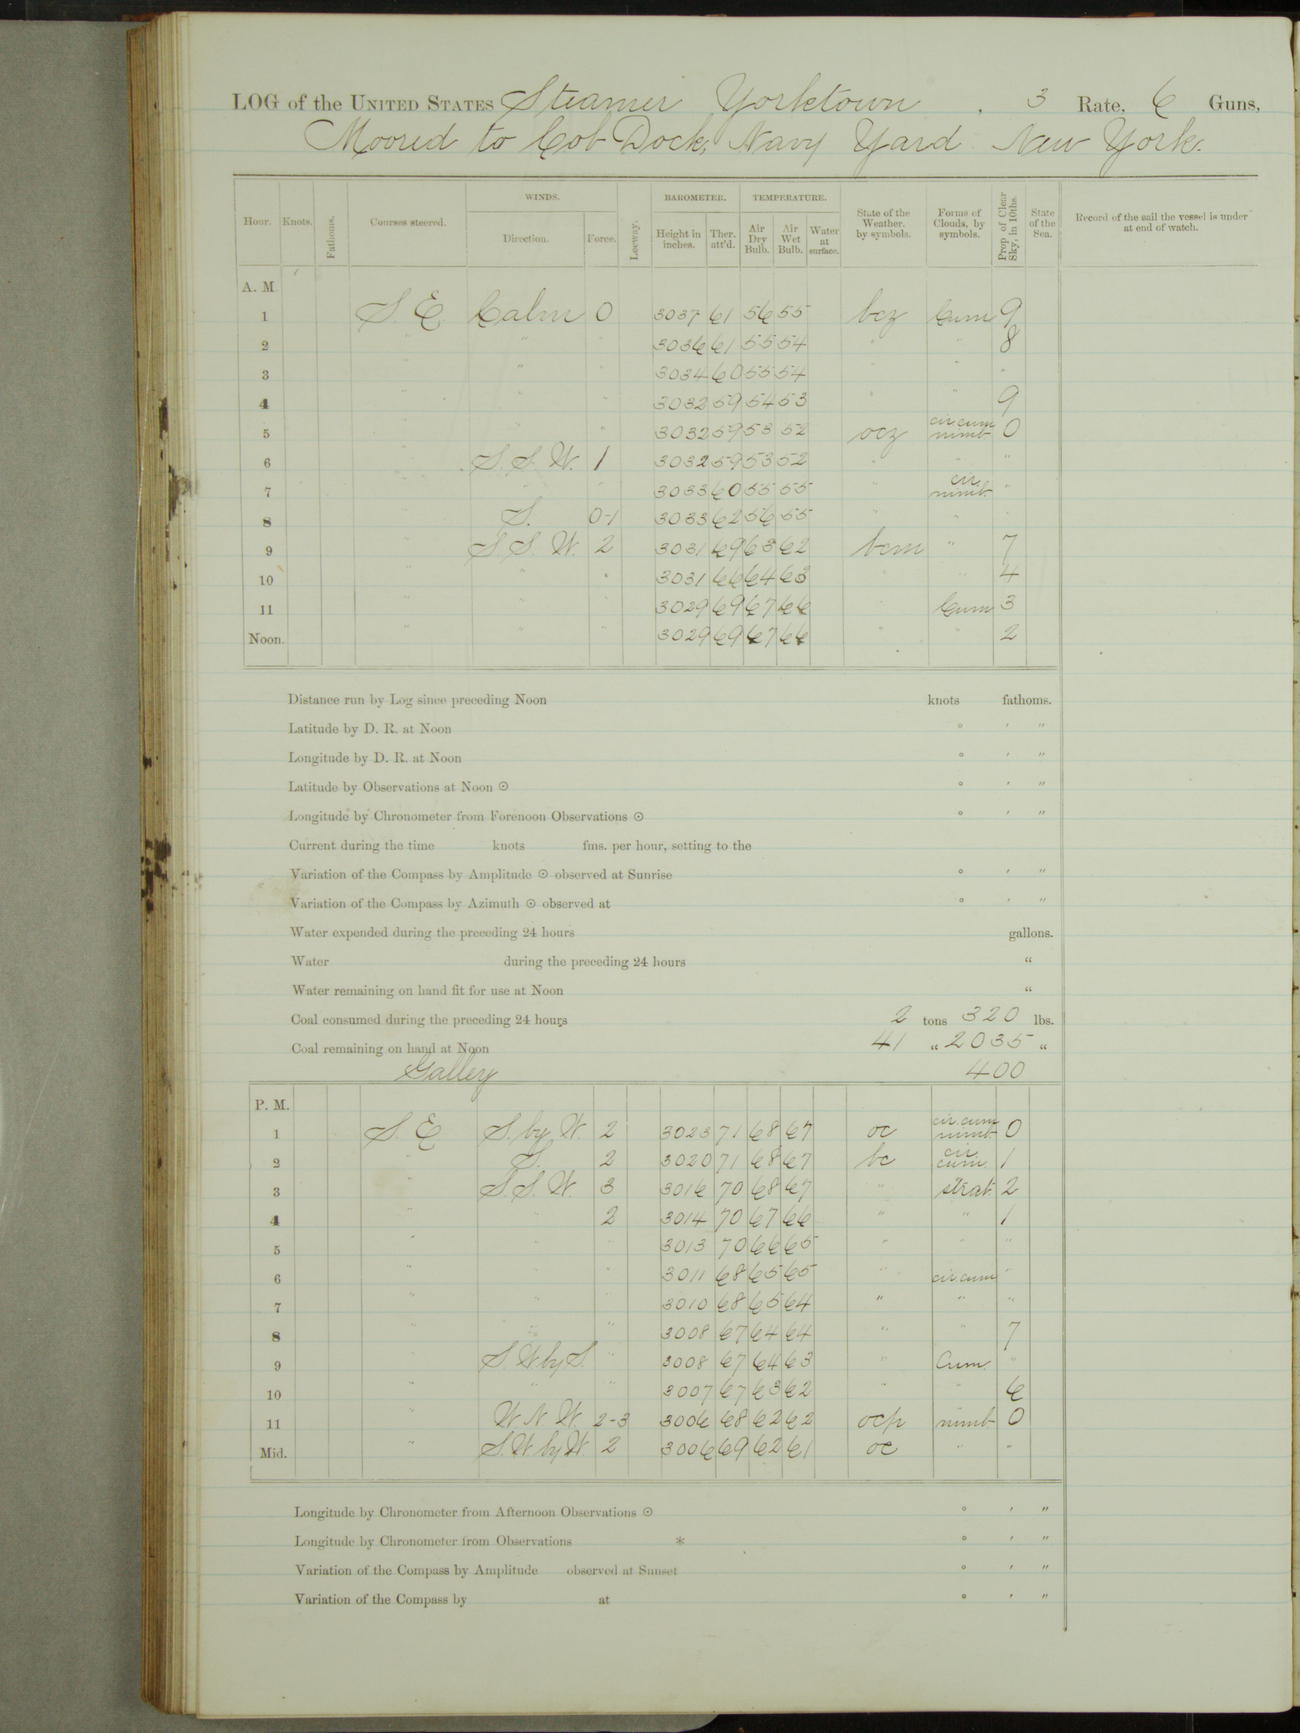 LOG of the UNITED STATES Steamer Yorktown , 3 Rate, 6 Guns,
Moored to Cob Dock, Navy Yard New York.
Hour. Knots. Fathoms. Courses steered. WINDS. Direction. Force. Leeway. BAROMETER. Height in inches. Ther. att'd. TEMPERATURE. Air Dry Bulb. Air Wet Bulb. Water at surface. State of the Weather, by symbols. Forms of Clouds, by symbols. Prop. of Clear Sky, in 10ths. State of the Sea. Record of the sail the vessel is under at end of watch.
A. M.
1 S. E. Calm 0 3037 61 56 55 bcz Cum 9
2 " " " 3036 61 55 54 " " 8
3 " " 3034 60 55 54 " " "
4 " " " 3032 59 54 53 " " 9
5 " " " 3032 59 53 52 ocz cir cum nimb 0
6 " S. S. W. 1 3032 59 53 52 " " "
7 " " " 3033 60 55 55 " cir nimb "
8 " S. 0-1 3033 62 56 55 " " "
9 " S. S. W. 2 3031 69 63 62 bcm " 7
10 " " " 3031 66 64 63 " " 4
11 " " " 3029 69 67 66 " Cum 3
Noon. " " " 3029 69 67 66 " " 2
Distance run by Log since preceding Noon knots fathoms.
Latitude by D. R. at Noon ° ' "
Longitude by D. R. at Noon ° ' "
Latitude by Observations at Noon ☉ ° ' "
Longitude by Chronometer from Forenoon Observations ☉ ° ' "
Current during the time knots fms. per hour, setting to the
Variation of the Compass by Amplitude ☉ observed at Sunrise ° ' "
Variation of the Compass by Azimuth ☉ observed at ° ' "
Water expended during the preceding 24 hours gallons.
Water during the preceding 24 hours "
Water remaining on hand fit for use at Noon "
Coal consumed during the preceding 24 hours 2 tons 320 lbs.
Coal remaining on hand at Noon 41 " 2035 "
Galley 400
P. M.
1 S. E. S. by W. 2 3023 71 68 67 oc cir. cum nimb 0
2 " S. 2 3020 71 68 67 bc cir cum. 1
3 " S. S. W. 3 3016 70 68 67 " strat 2
4 " " 2 3014 70 67 66 " " 1
5 " " " 3013 70 66 65 " " "
6 " " " 3011 68 65 65 " cir cum "
7 " " " 3010 68 65 64 " " "
8 " " " 3008 67 64 64 " " 7
9 " S. W by S. " 3008 67 64 63 " Cum. "
10 " " " 3007 67 63 62 " " 6
11 " W. N. W. 2-3 3006 68 62 62 ocp nimb 0
Mid. " S. W by W. 2 3006 69 62 61 oc " "
Longitude by Chronometer from Afternoon Observations ☉ ° ' "
Longitude by Chronometer from Observations * ° ' "
Variation of the Compass by Amplitude observed at Sunset ° ' "
Variation of the Compass by at ° ' "